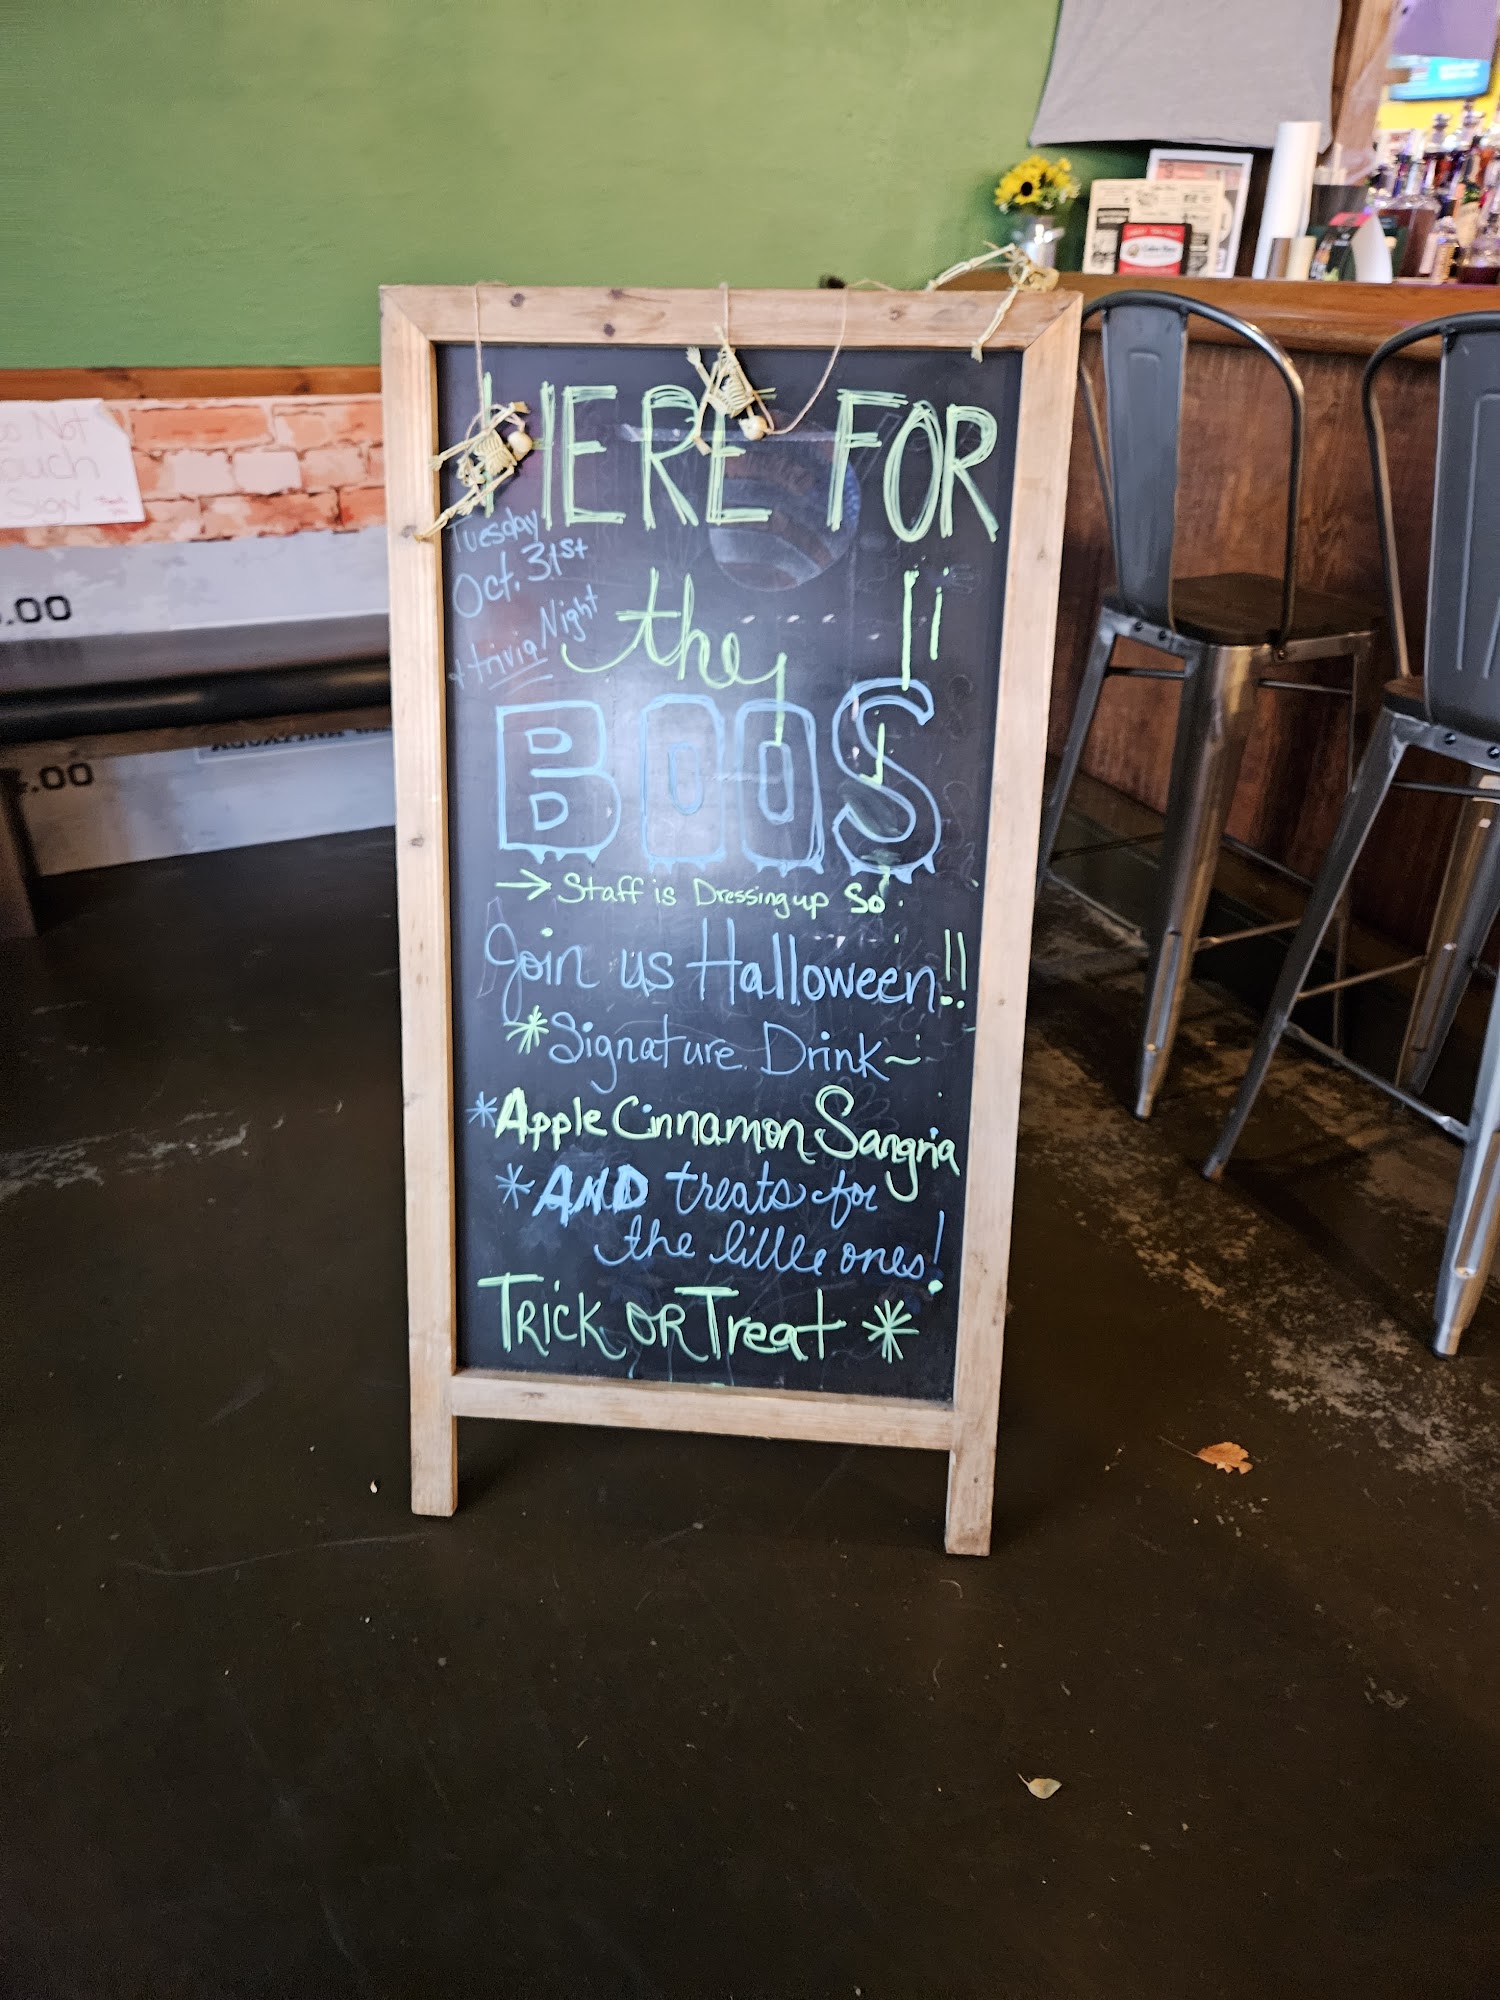 HERE FOR
Tuesday
Oct. 31st
+ trivia Night
the
BOOS
→ Staff is Dressing up So
Join us Halloween!!
*Signature Drink~
*Apple Cinnamon Sangria
*AND treats for
the little ones!
Trick or Treat *
Not
Touch
Sign
.00
.00